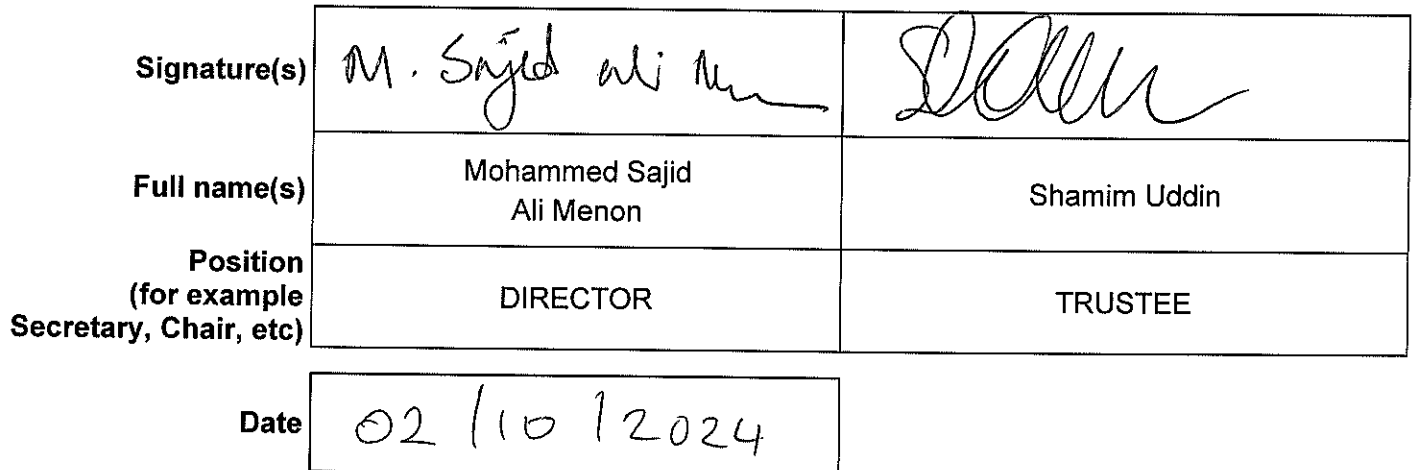 Signature(s) M. Sajid ali
Full name(s) Mohammed Sajid Ali Menon Shamim Uddin
Position
(for example
Secretary, Chair, etc) DIRECTOR TRUSTEE
Date 02/10/2024